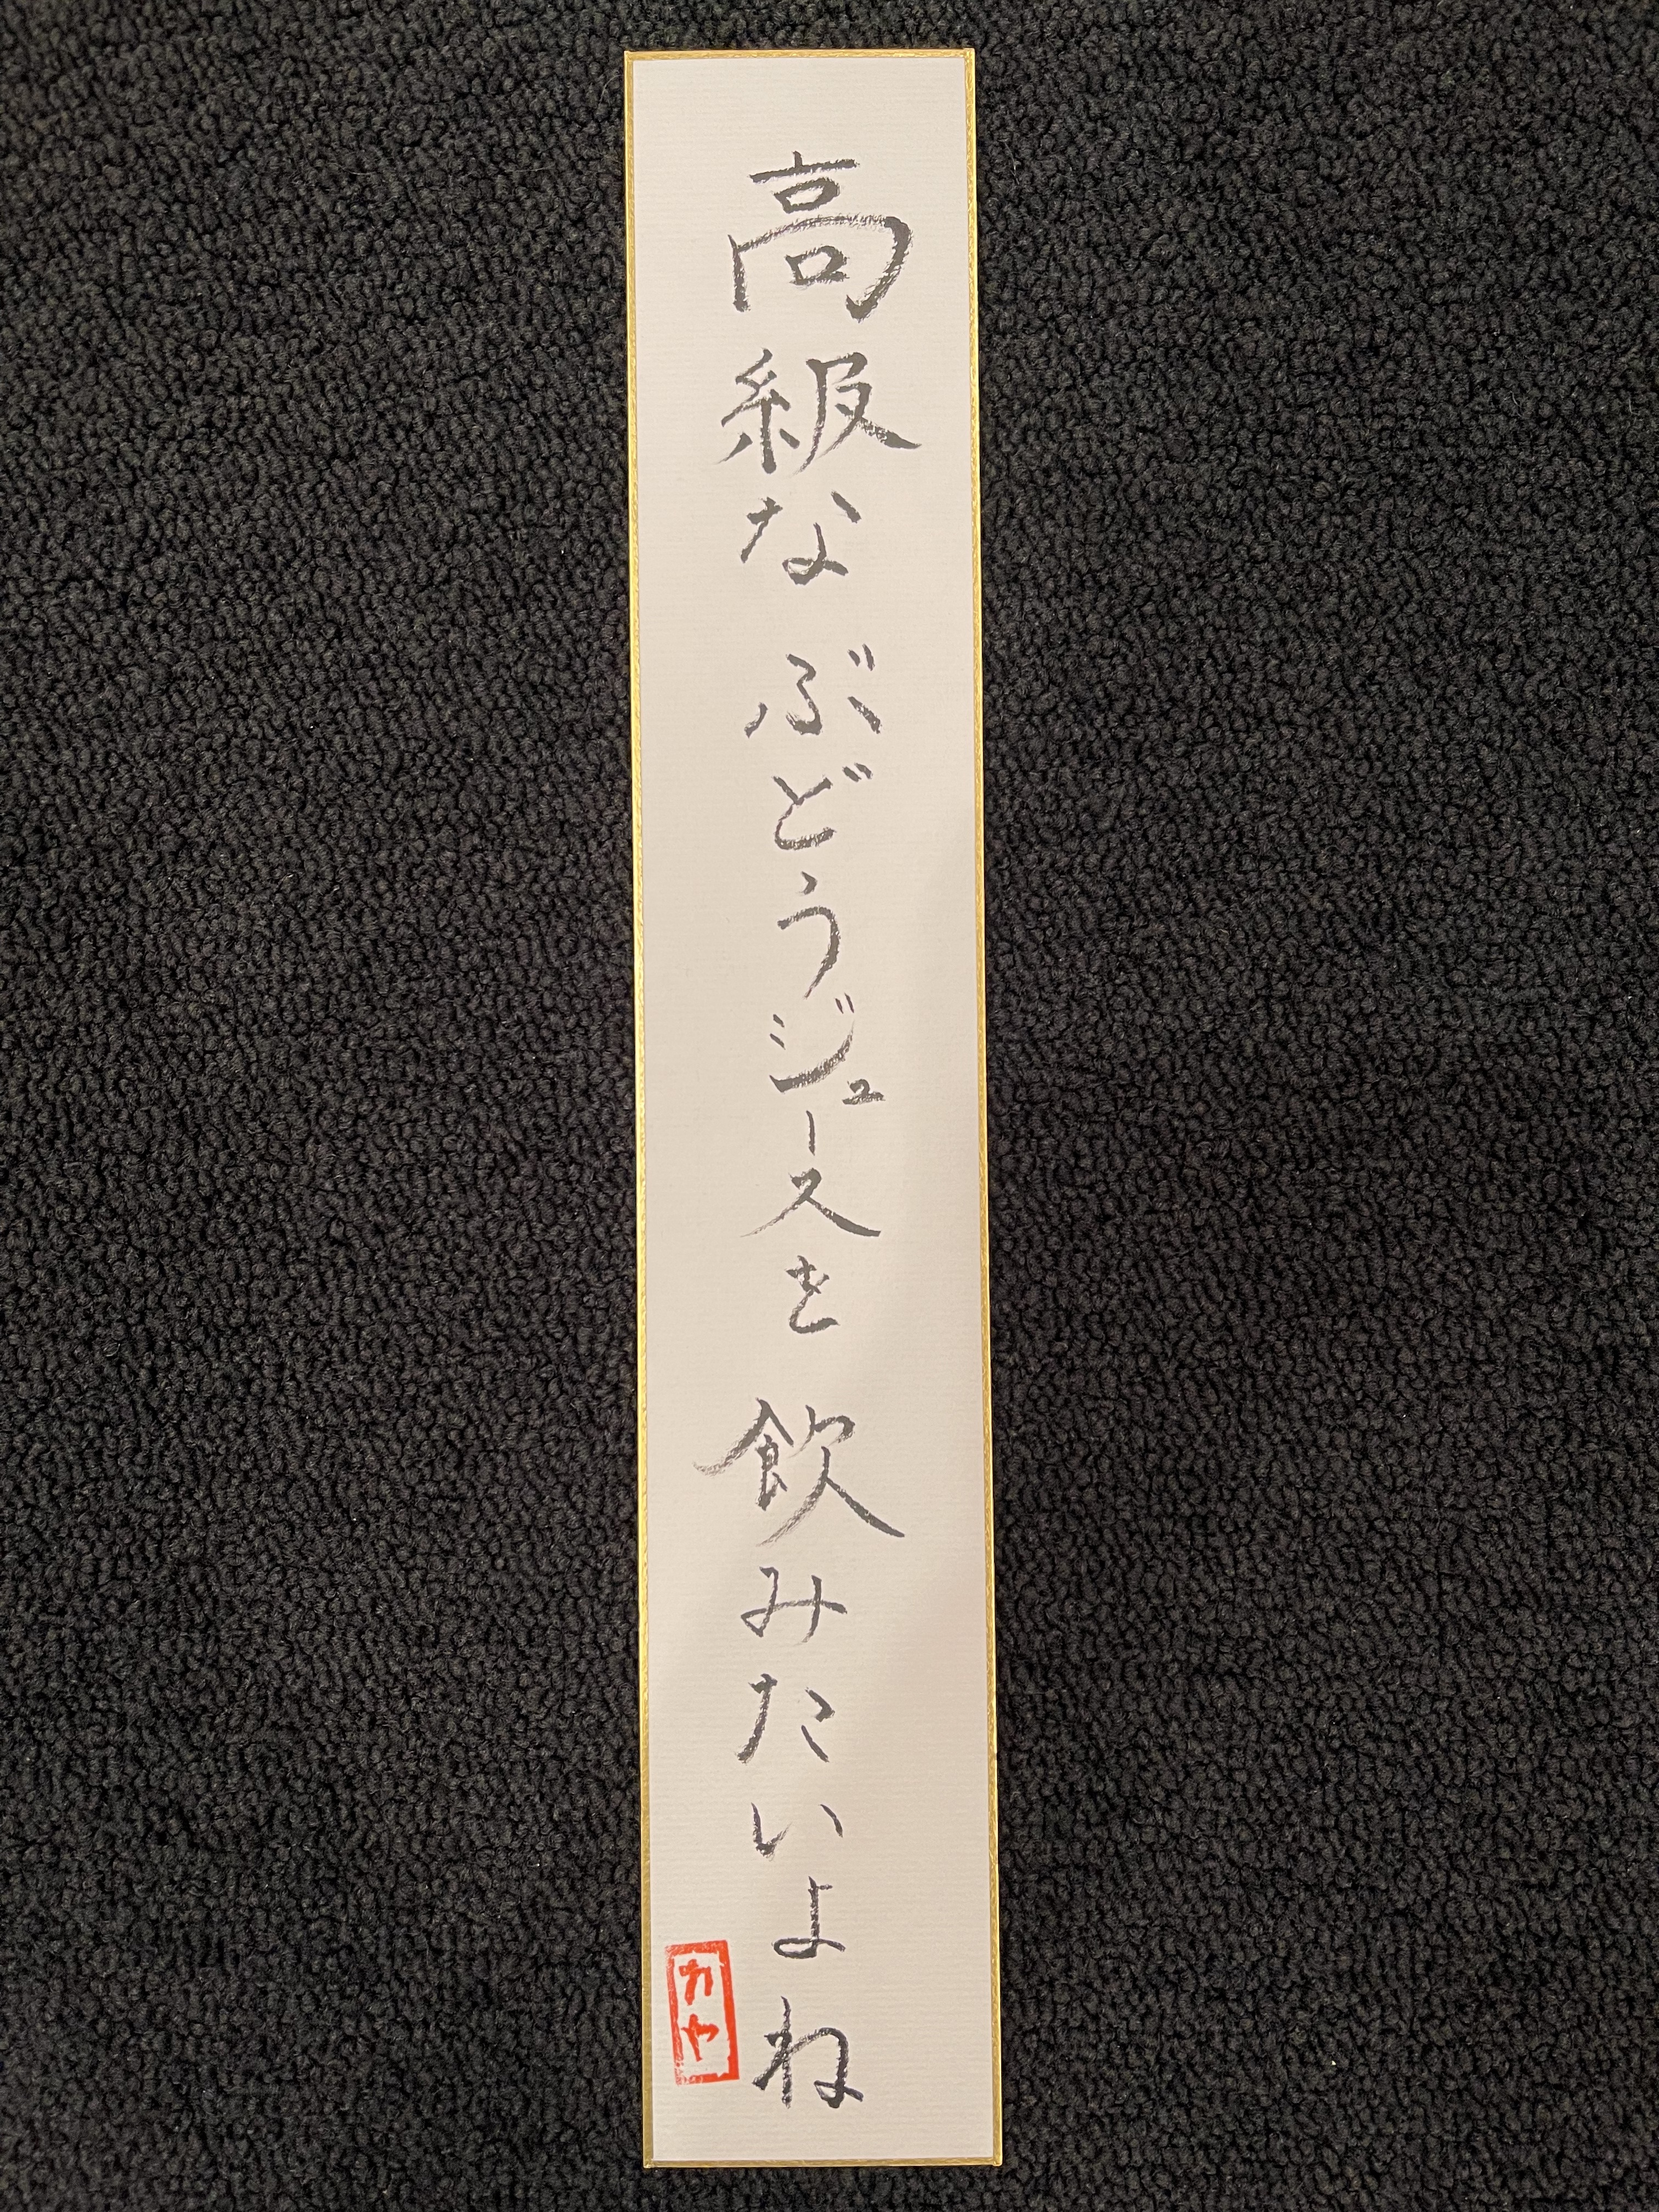 高級な ぶどうジュースを 飲みたいよね
カヤ